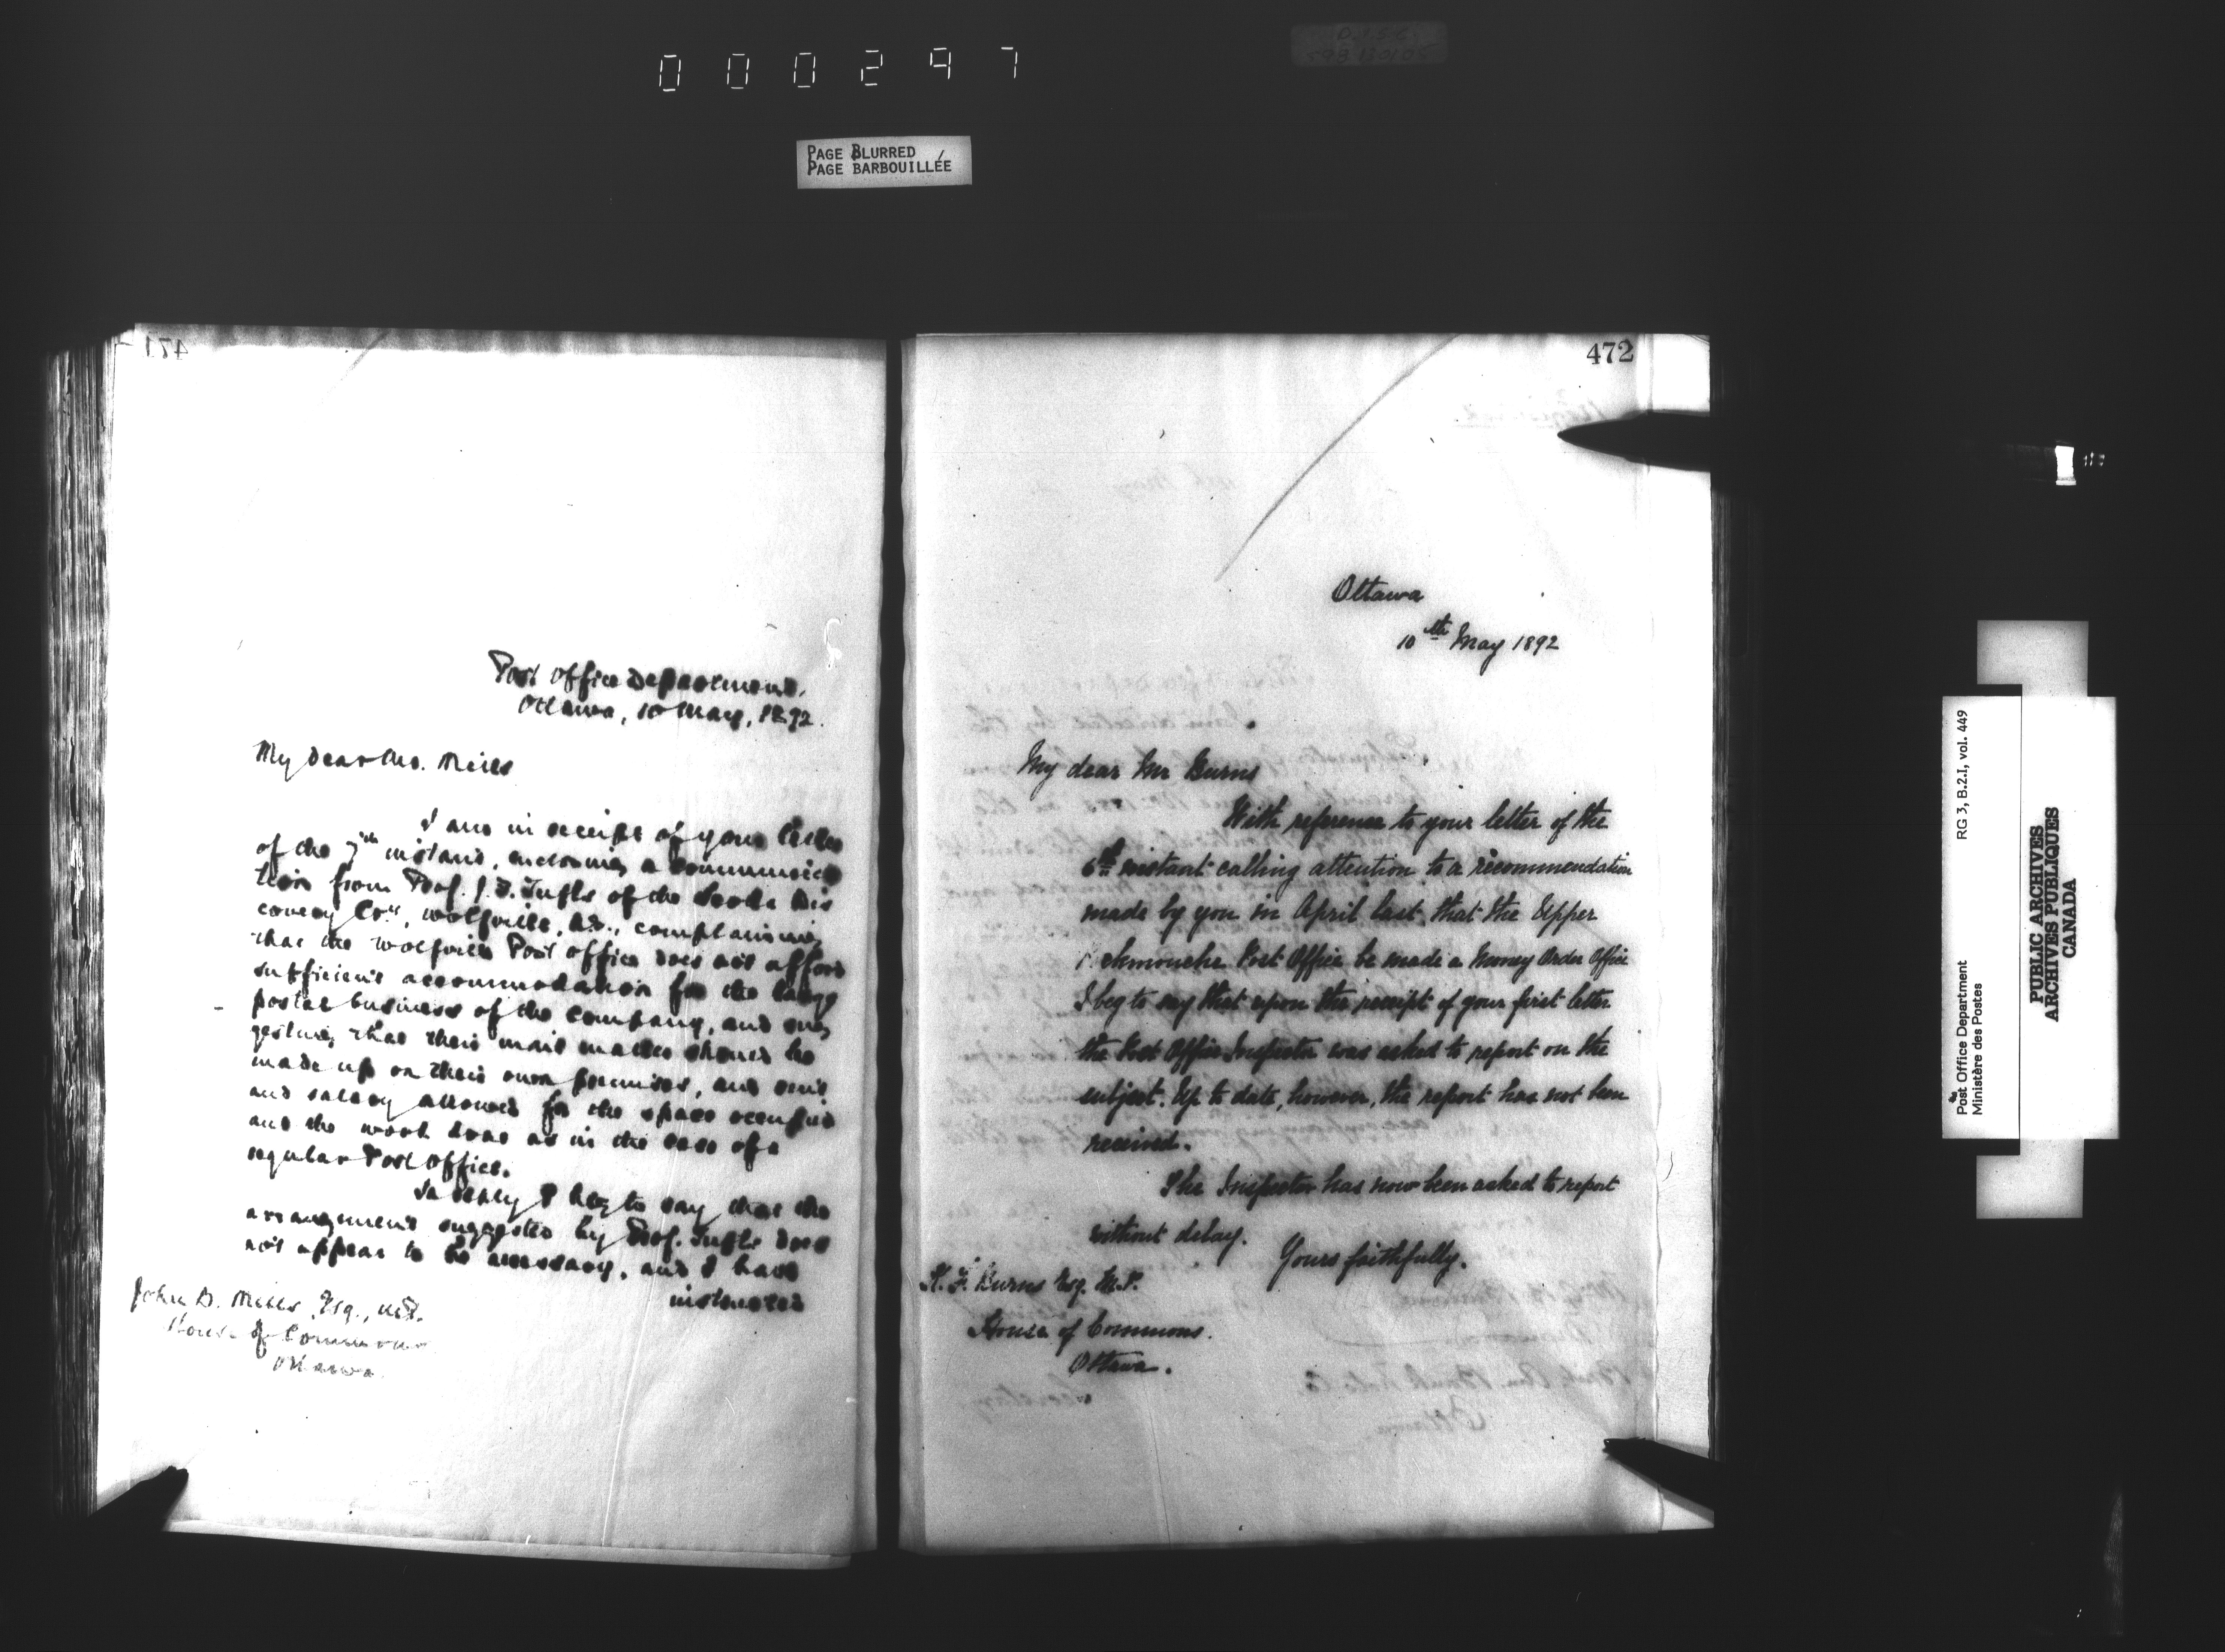 000297
PAGE BLURRED
PAGE BARBOUILLÉE
471
Post Office Department,
Ottawa, 10 May, 1892.
My Dear Mr. Mills
I am in receipt of your letter
of the 7th instant, enclosing a communica
tion from Prof. J. F. Tufts of the Skoda Dis
covery Co'y, Wolfville, N.S., complaining
that the Wolfville Post Office does not afford
sufficient accommodation for the large
postal business of the company, and sug
gesting that their mail matter should be
made up on their own premises, and rent
and salary allowed for the space occupied
and the work done as in the case of a
regular Post Office.
In reply I beg to say that the
arrangement suggested by Prof. Tufts does
not appear to be necessary, and I have
instructed
John B. Mills, Esq., M.P.
House of Commons
Ottawa.
472
Ottawa
10th May 1892
My dear Mr Burns
With reference to your letter of the
6th instant calling attention to a recommendation
made by you in April last, that the Upper
Post Office be made a Money Order Office
I beg to say that upon the receipt of your first letter
the Post Office Inspector was asked to report on the
subject. Up to date, however, the report has not been
received.
The Inspector has now been asked to report
without delay.
Yours faithfully.
K. F. Burns Esq. M.P.
House of Commons.
Ottawa.
Post Office Department
Ministère des Postes
RG 3, B.2.I, vol. 449
PUBLIC ARCHIVES
ARCHIVES PUBLIQUES
CANADA